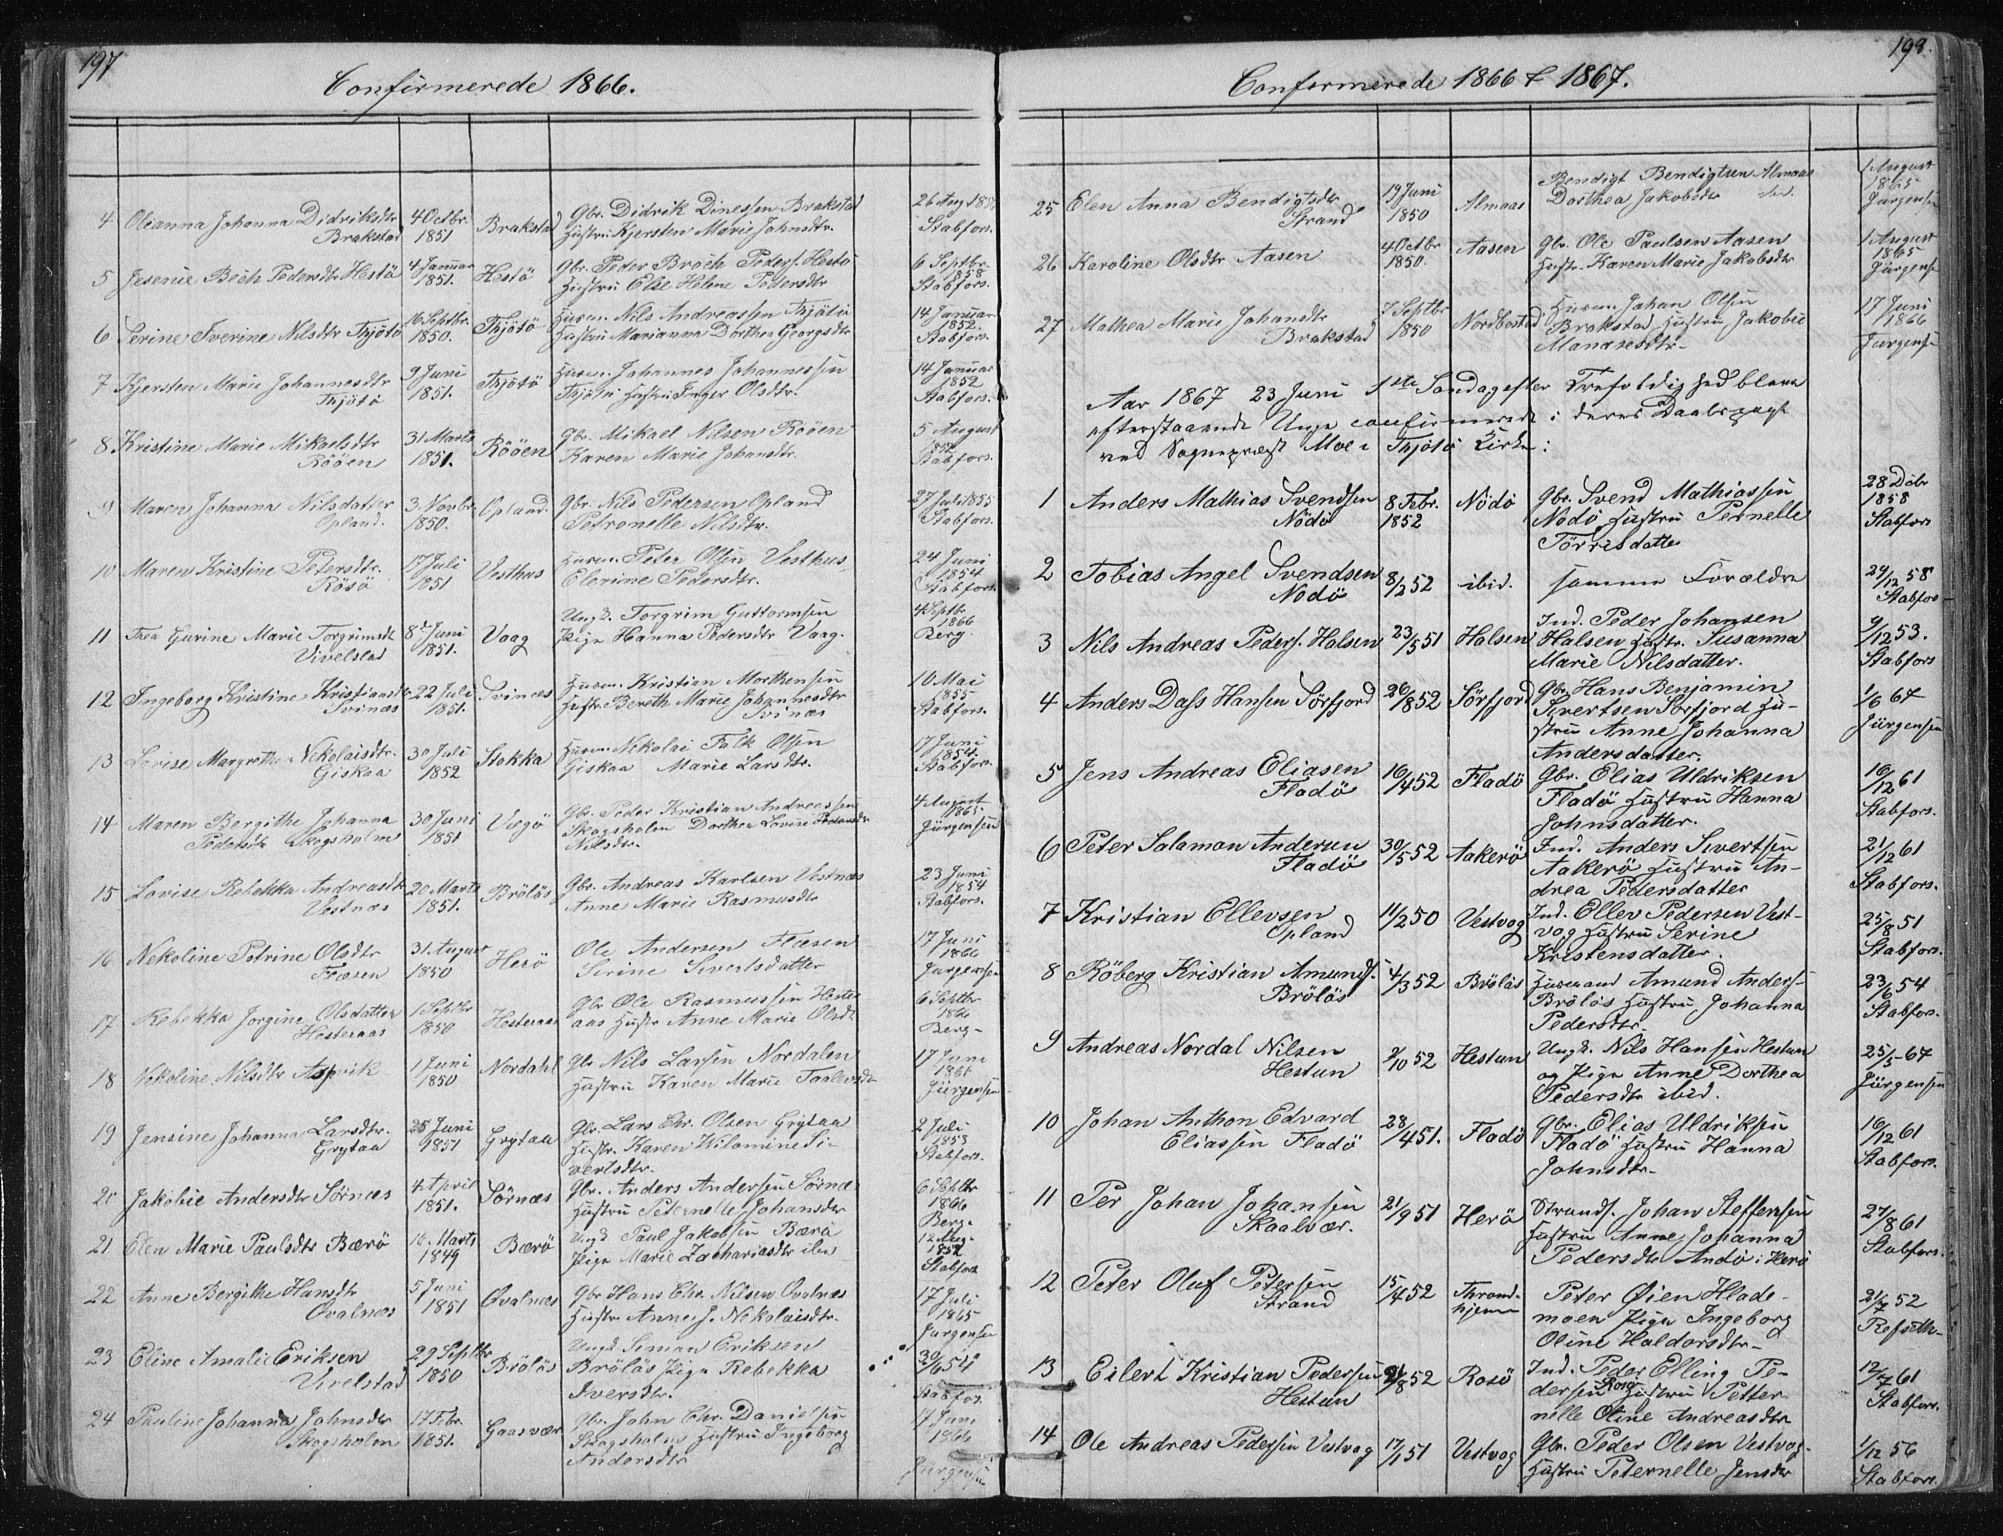 197
Confirmerede 1866.
4 Oleanna Johanna Didriksdtr Brakstad 4 Octbr. 1851 Brakstad Gbr. Didrik Dinessen Brakstad Hustru Kjersten Marie Johnsdtr. 26 Aug 185 Stabfors.
5 Jesenie Bech Pedersdtr Hestö 4 Januar 1851. Hestö Gbr. Peder Broch Peders. Hestö Hustru Else Helene Pedersdtr 6 Septbr. 1858 Stabfors.
6 Serine Iverine Nilsdtr Thjötö 16 Septbr. 1850. Thjötö Husm. Nils Andreassen Thjötö Hustru Marianna Dorthea Georgsdtr 14 Januar 1852. Stabfors.
7 Kjersten Marie Johannesdtr Thjötö 9 Juni 1851. Thjötö Husm. Johannes Johannessen Thjötö Hustru Inger Olsdtr. 14 Januar 1852 Stabfors.
8. Kristine Marie Mikaelsdtr Rööen 31 Marts 1851. Rööen Gbr. Mikael Nilsen Rööen Karen Marie Johansdtr. 5 August 1852 Stabfors.
9 Maren Johanna Nilsdatter Opland. 3 Novbr. 1850. Opland. Gbr. Nils Pedersen Opland Petronelle Nilsdtr. 27 Juli 1855 Stabfors.
10 Maren Kristine Petersdtr. Rösö 17 Juli 1851 Vesthus Husm. Peter Olsen Vesthus Elerine Pedersdtr. 24 Juni 1854 Stabfors.
11 Thea Gurine Marie Torgrimsdt Vivelstad 8de Juni 1851. Vaag Ungk. Torgrim Guttormsen Pige Hanna Pedersdtr Vaag. 4 Septbr 1866 Berg.
12 Ingeborg Kristine Kristiansdtr Svinæs 22 Juli 1851. Svinæs Husm. Kristian Morthensen Hustr. Bereth Marie Johannesdtr Svinæs 10 Mai 1855 Stabfors.
13 Lovise Margrethe Nikolaisdtr. Giskaa 30 Juli 1852 Stokka Husm. Nikolai Falk Olsen Giskaa Marie Larsdtr. 17 Juni 1854. Stabfors.
14 Maren Bergithe Johanna Pedersdtr Skogsholm 30 Juni 1851 Vægö Gbr. Peder Kristian Andreassen Skogsholm Dorthea Lovise Nilsdtr. 4 August 1865. Jürgensen
15 Lovise Rebekka Andreasdtr Vestnæs 20 Marts 1851. Brölös Gbr. Andreas Karlsen Vestnæs Anne Marie Rasmusdtr 23 Juni 1854 Stabfors.
16 Nekoline Petrine Olsdtr Flæsen 31. August 1850 Herö Ole Andersen Flæsen Serine Sivertsdatter 17 Juni 1866 Jurgensen
17 Rebekka Jorgine Olsdatter Hesteraas 1 Septbr 1850 Hesteraas Gbr Ole Rasmussen Hester aas Hustr Anne Marie Olsdt 6 Septbr 1866 Berg-
18 Nekoline Nilsdtr Aspvik 1 Juni 1850 Nordahl Gbr Nils Larsen Nordalen Hustru Karen Marie 17 Juni 1861 Jürgensen
19 Jensine Johanna Larsdtr. Grytaa 25 Juni 1851 Grytaa Gbr. Lars Chr. Olsen Grytaa Hustr. Karen Wilamine Si- vertsdtr. 2 Juli 1853 Stabfors.
20 Jakobie Andersdtr Sörnæs 4 April 1851. Sörnæs Gbr. Anders Andersen Sörnæs Hustru Peternelle Johansdtr 6 Septbr 1866 Berg-
21 Elen Marie Paulsdtr Bærö 16. Marts 1849 Bærö Ungk. Paul Jakobsen Bærö Pige Marie Zachariasdtr ibm 12 Aug- 1852 Stabfors
22 Anne Bergithe Hansdtr Ovalnæs 5 Juni 1851 Ovalnæs Gbr Hans Chr. Nilsen Ovalnæs Hustr Anne J. Nikolaisdtr. 17 Juli 1865 Jurgensen
23 Eline Amalie Eriksen Vivelstad 29 Septbr 1850 Brölös Ungk. Simon Eriksen Brölös Pige Rebekka Iversdtr. 30/6 54 Stabfors.
24 Pauline Johanna Johnsdtr Skogsholm 17 Febr. 1851. Gaasvær Gbr. John Chr. Danielsen Skogsholm Hustru Ingeborg Andersdtr 17 Juni 1866 Jürgensen
198.
Conformerede 1866 & 1867.
25 Elen Anna Bendigtsdtr Strand 19 Juni 1850 Almaas Bendigt Bendigtsen Almaas Dorthea Jakobsdtr ibid. 1 August 1865 Jürgensen
26 Karoline Olsdtr Aasen 4 Octbr 1850. Aasen Gbr. Ole Paulsen Aasen Hustr. Karen Marie Jakobsdtr 1 August 1865 Jürgense
27 Mathea Marie Johansdtr Brakstad 7 Septbr 1850 Nordbostad Husm. Johan Olsen Brakstad Hustru Jakobie Manasesdtr- 17 Juni 1866 Jürgense
Aar 1867 23 Juni 1ste Søndag efter Trefoldighed bleve
efterstaaende Unge confirmerede i deres Daabspagt
ved Sognepræst Moe i Thjötö Kirke:
1 Anders Mathias Svendsen Nödö 8 Febr. 1852 Nödö Gbr. Svend Mathiassen Nödö, Hustru Pernelle Törrisdatter 28 Dcbr 1858 Stabfors
2 Tobias Angel Svendsen Nödö 8/2 52 ibid. samme Forældre 29/12 58 Stabfors
3 Nils Andreas Peders. Halsen 23/5 51 Halsen Ind. Peder Johansen Halsen Hustr. Susanna Marie Nilsdatter. 9/12 53. Stabfors
4 Anders Dass Hansen Sörfjord 26/8 52 Sörfjord Gbr. Hans Benjamin Sivertsen Sörfjord Hu- stru Anne Johanna Andersdatter. 1/6 67 Jürgensen
5 Jens Andreas Eliasen Fladö 16/4 52 Fladö Gbr. Elias Uldriksen Fladö Hustru Hanna Johnsdatter. 16/12 61 Stabfors.
6 Peter Salamon Andersen Fladö 30/5 52 Aakerö Ind. Anders Sivertsen Aakerö Hustru An- drea Pedersdatter 21/12 61 Stabfors.
7 Kristian Ellevsen Opland 11/2 50 Vestvog Ind. Ellev Pedersen Vest- vog Hustru Serine Kristensdatter. 25/8 51 Stabfors.
8 Röberg Kristian Amunds. Brölös 4/3 52 Brölös Husmand Amund Anders. Brölös Hustru Johanna Pedersdtr. 23/6 54 Stabfors.
9 Andreas Nordal Nilsen Hestun 2/10 52 Hestun Ungk. Nils Hansen Hestun og Pige Anne Dorthea Pedersdtr ibid. 25/5 67 Jürgensen
10 Johan Anthon Edvard Eliassen Fladö 28/4 51. Fladö Gbr. Elias Uldriksen Fladö Hustru Hanna Johnsdtr- 16/12 61 Stabfors.
11 Per Johan Johansen Skaalvær. 21/9 51 Herö Strands. Johan Steffensen Hustru Anne Johanna Pedersdtr Andö i Herö 27/8 61 Stabfors.
12 Peter Oluf Petersen Strand 15/4 52 Thrond- hjem Peter Øien Hlade- moen Pige Ingeborg Oline Haldorsdtr- 21/7 52
13 Eilert Kristian Pedersen Hestun 21/8 52 Rosö Ind. Peder Elling Pe- dersen Rosö Hustru Petter nelle Oline Andreasdtr 12/7 61 Stabfors.
14 Ole Andreas Pedersen Vestvog 17/1 51 Vestvog Gbr. Peder Olsen Vestvog- Hustru Peternelle Jensdtr 1/12 56 Stabfors.